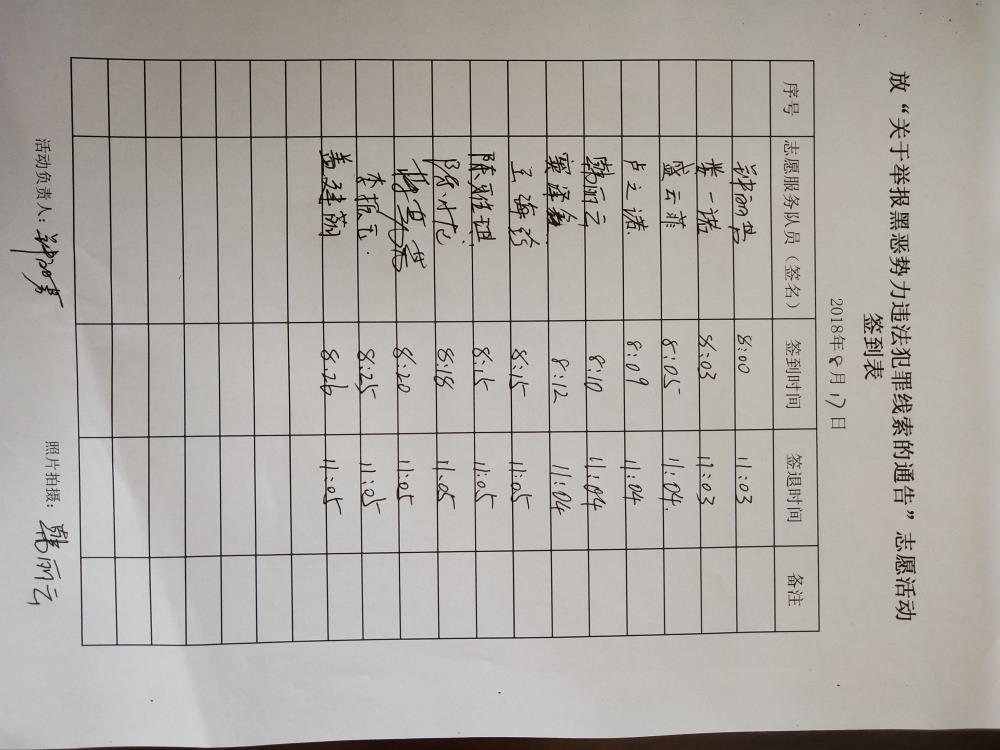 放“关于举报黑恶势力违法犯罪线索的通告”志愿活动
签到表
2018年8月17日
序号 志愿服务队员（签名） 签到时间 签退时间 备注
8:00 11:03
娄一诺 8:03 11:03
盛云菲 8:05 11:04
卢之诺 8:09 11:04
韩丽云 8:10 11:04
窦泽鑫 8:12 11:04
王海珍 8:15 11:05
陈 8:15 11:05
陈 8:18 11:05
8:20 11:05
李振宝 8:25 11:05
盖 8:26 11:05
活动负责人： 照片拍摄：韩丽云